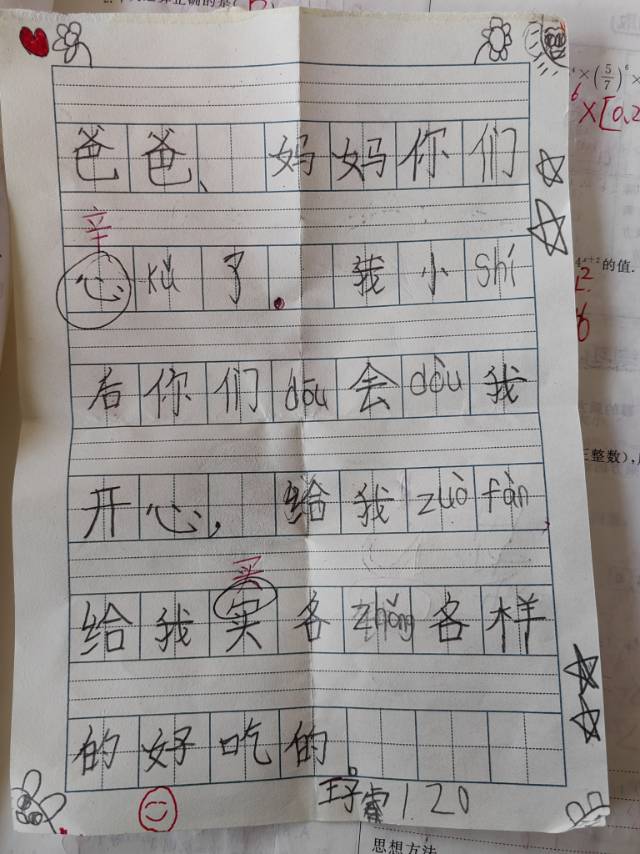 爸爸、妈妈你们
辛
心kǔ了。我小shí
后你们dōu会dòu我
开心，给我zuòfàn
买
给我实各zhǒng各样
的好吃的
120
×(5/7)⁶×
×[0.2
4ˣ⁺²的值.
整数),
思想方法